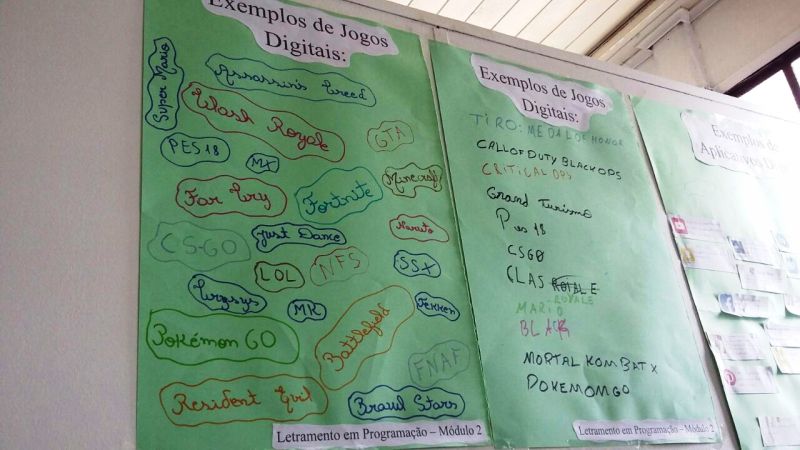 Exemplos de Jogos
Digitais:
Super Mario
Assassin's Creed
Clash Royale
GTA
PES 18
MX
Minecraft
Far Cry
Fortnite
Naruto
CS-GO
Just Dance
LOL
NFS
SSX
Crysys
MK
Tekken
Pokémon GO
Battlefield
FNAF
Resident Evil
Brawl Stars
Letramento em Programação – Módulo 2
Exemplos de Jogos
Digitais:
TIRO: MEDAL DE HONOR
CALL OF DUTY BLACK OPS
CRITICAL OPS
Grand Turismo
Pes 18
CSGO
CLAS ROYALE
MARIO
BLACK
MORTAL KOMBAT X
POKEMOM GO
Letramento em Programação – Módulo 2
Exemplos de
Aplicativos D